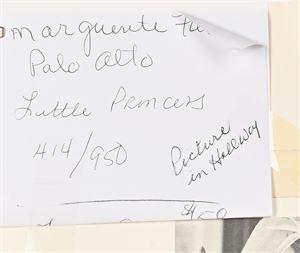 marguerite Fu
Palo Alto
Little Princess
414/950
Picture
in Hallway